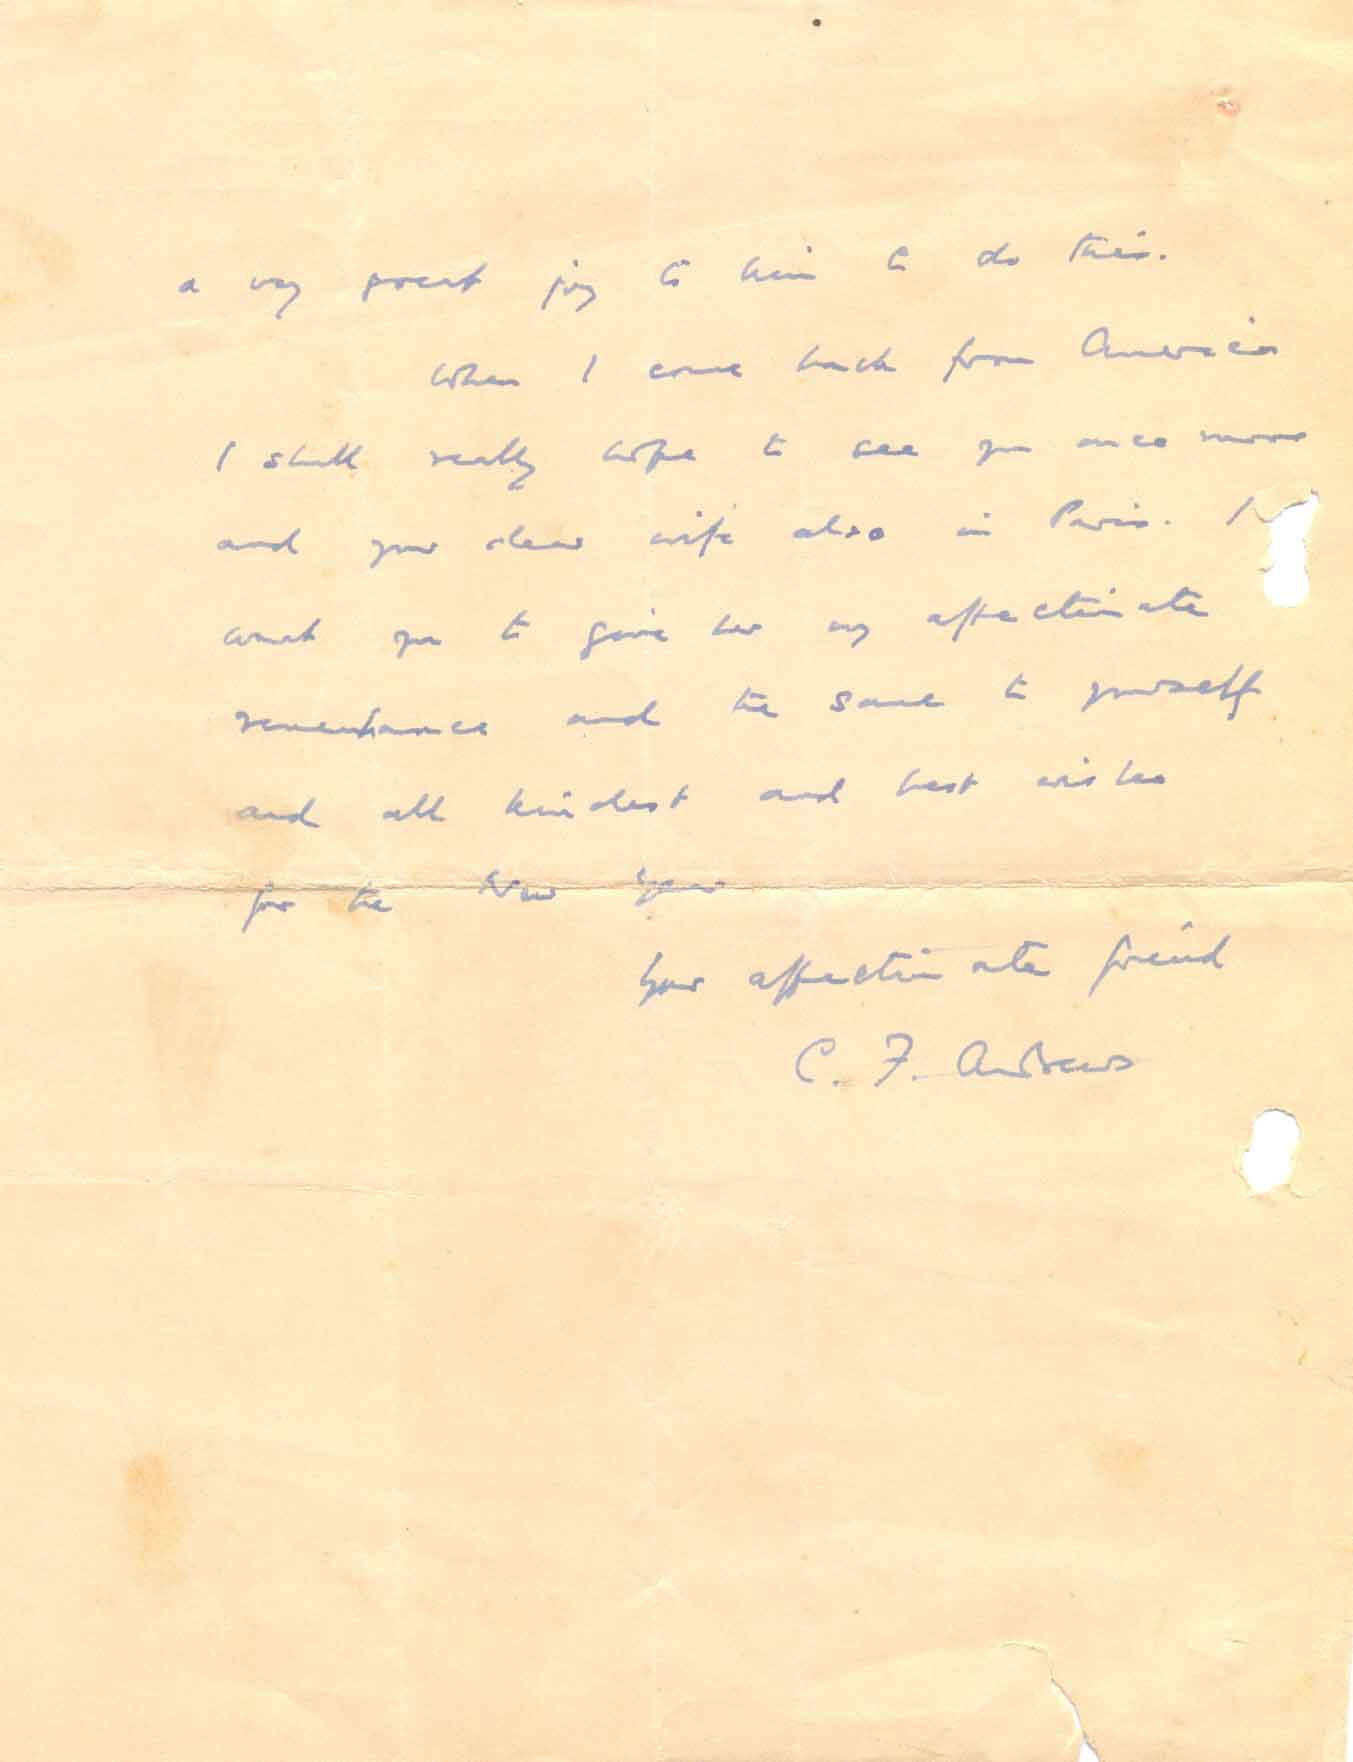 a very great joy to him to do this.
When I come back from America
I shall really hope to see you once more
and your dear wife also in Paris. I
want you to give her my affectionate
remembrance and the same to yourself
and all kindest and best wishes
for the New Year
Your affectionate friend
C. F. Andrews